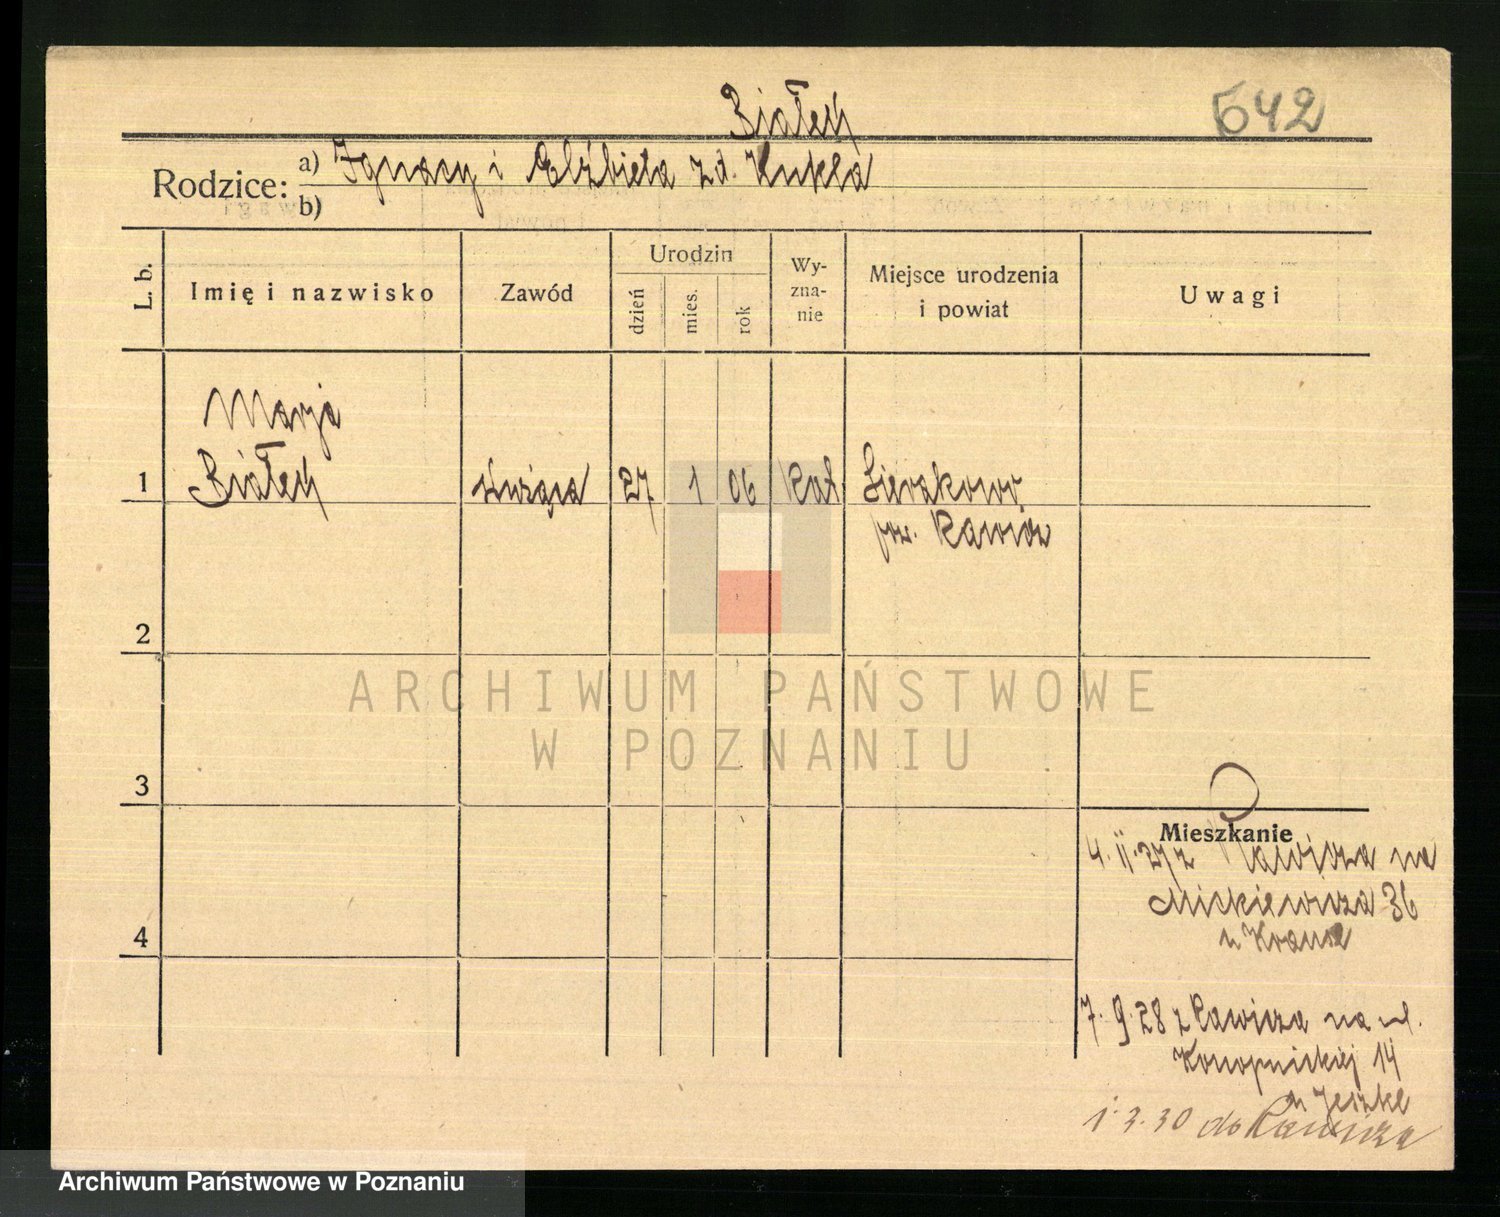 Białek
642
Rodzice: a) Ignacy i Elżbieta zd. Kukla
b)
L. b.
Imię i nazwisko
Zawód
Urodzin
dzień
mies.
rok
Wy-
zna-
nie
Miejsce urodzenia
i powiat
Uwagi
Marja
1 Białek służąca 27 1 06 kat. Sierakowo
pow. Rawicz
2
ARCHIWUM PAŃSTWOWE
W POZNANIU
3
Mieszkanie
4. II. 27 z Rawicza na
Mickiewicza 36
u Kranz
4
7. 9. 28 z Rawicza na ul.
Konopnickiej 14
u Jeszke
1. 3. 30 do Rawicza
Archiwum Państwowe w Poznaniu